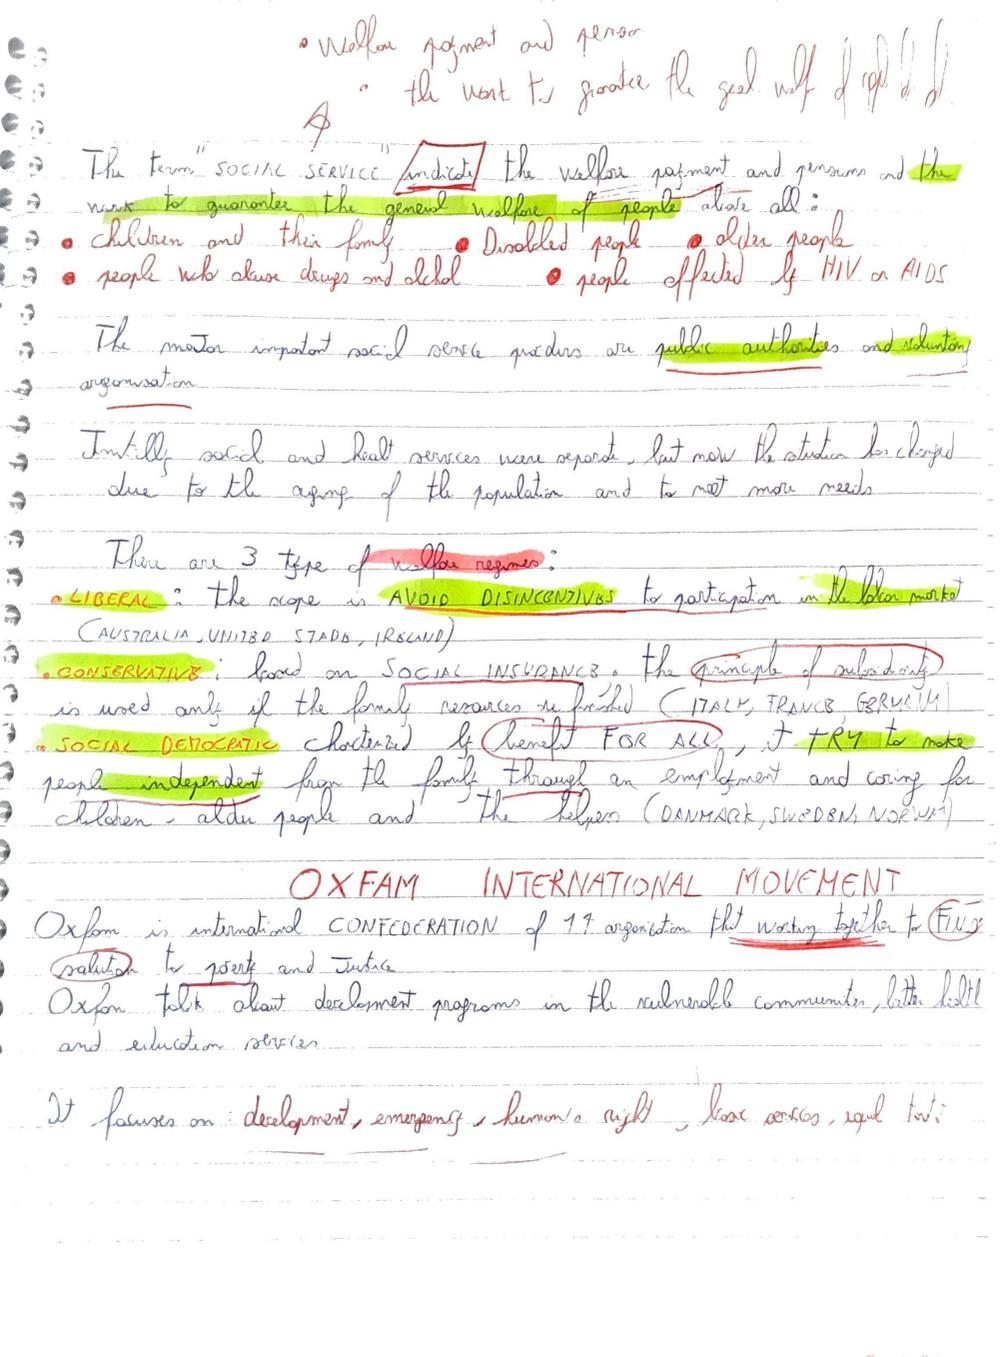 • Welfare payment and person
• the work to guarantee the
The term "SOCIAL SERVICE" indicate the welfare payment and pensions and the
work to guarantee the general welfare of people above all:
• children and their family • Disabled people • older people
• people who abuse drugs and alchol • people affected by HIV or AIDS
The most important social service providers are public authorities and voluntary
organisation
Initilly social and healt services were separate, but now the situation has changed
due to the aging of the population and to meet more needs
There are 3 type of welfare regimes:
• LIBERAL: the scope is AVOID DISINCENTIVES to participation in the labor market
(AUSTRALIA, UNITED STATE, IRELAND)
• CONSERVATIVE: based on SOCIAL INSURANCE. the principle of subsidiarity
is used only if the family resources are finished (ITALY, FRANCE, GERMANY)
• SOCIAL DEMOCRATIC chacterized by benefit FOR ALL, it TRY to make
people independent from the family through an employment and caring for
children - older people and the helpers (DANMARK, SWEDEN, NORWAY)
OXFAM INTERNATIONAL MOVEMENT
Oxfam is international CONFEDERATION of organisation that working together to FIND
solution to poverty and Justice
Oxfam talk about development programs in the vulnerable communities, better healt
and education services
It focuses on: development, emergency, human's right, basic services, equal